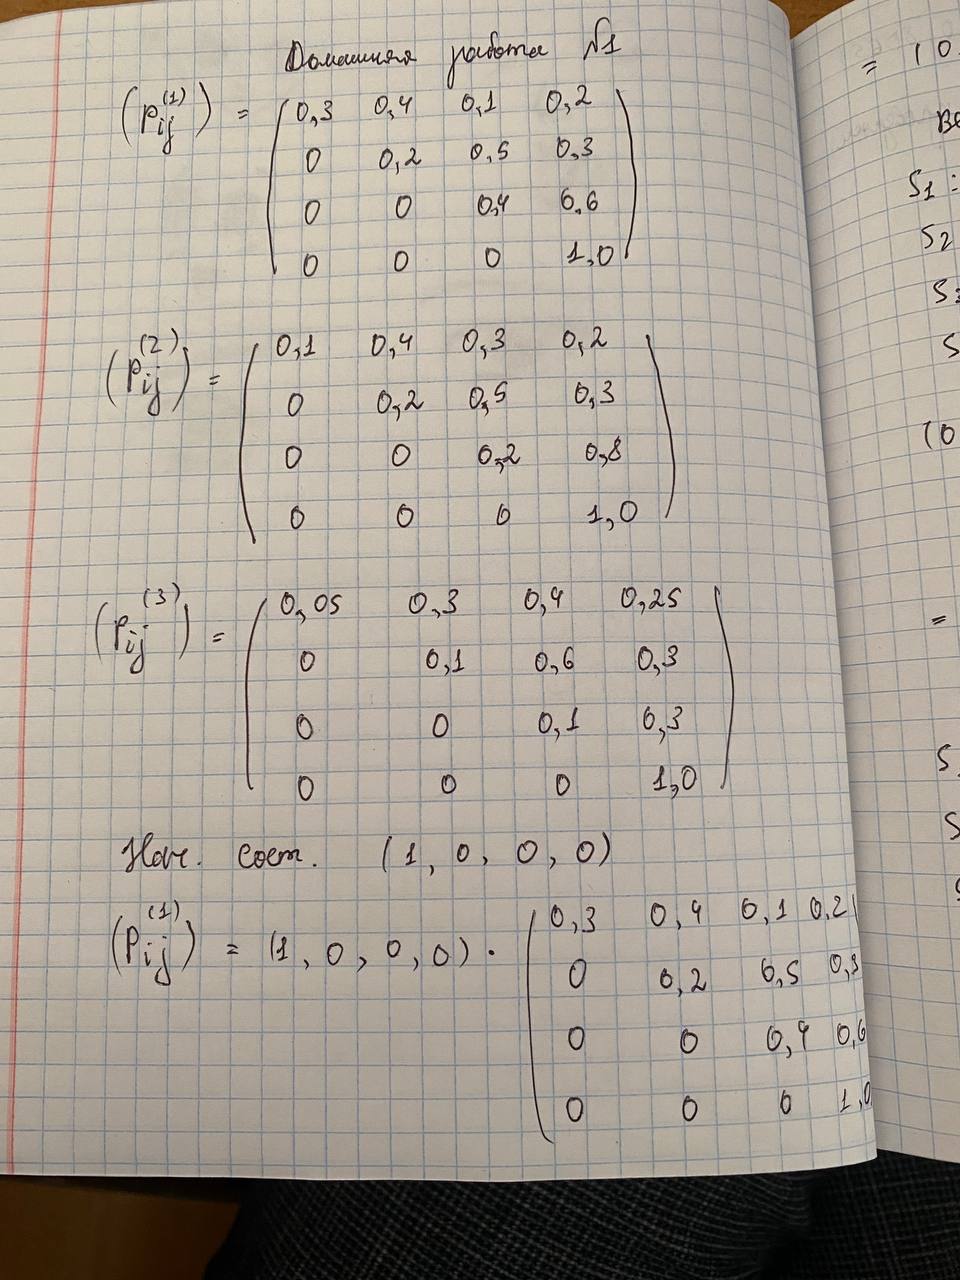 Домашняя работа №1
(Pij^(1)) = (0,3 0,4 0,1 0,2
0 0,2 0,5 0,3
0 0 0,4 0,6
0 0 0 1,0)
(Pij^(2)) = (0,1 0,4 0,3 0,2
0 0,2 0,5 0,3
0 0 0,2 0,8
0 0 0 1,0)
(Pij^(3)) = (0,05 0,3 0,4 0,25
0 0,1 0,6 0,3
0 0 0,1 0,3
0 0 0 1,0)
Нач. сост. (1, 0, 0, 0)
(Pij^(1)) = (1, 0, 0, 0) · (0,3 0,4 0,1 0,2
0 0,2 0,5 0,3
0 0 0,4 0,6
0 0 0 1,0
= (0
S1 :
S2
S3
S
(0
=
S
S